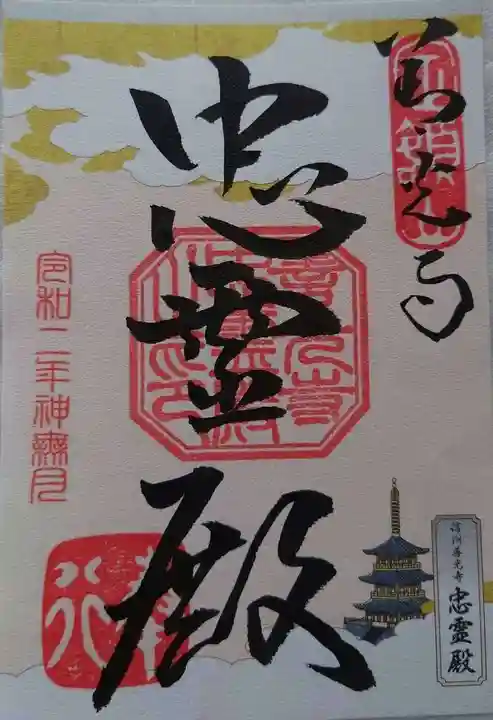 善光寺
忠霊殿
令和二年神無月
奉行
信州善光寺
忠霊殿